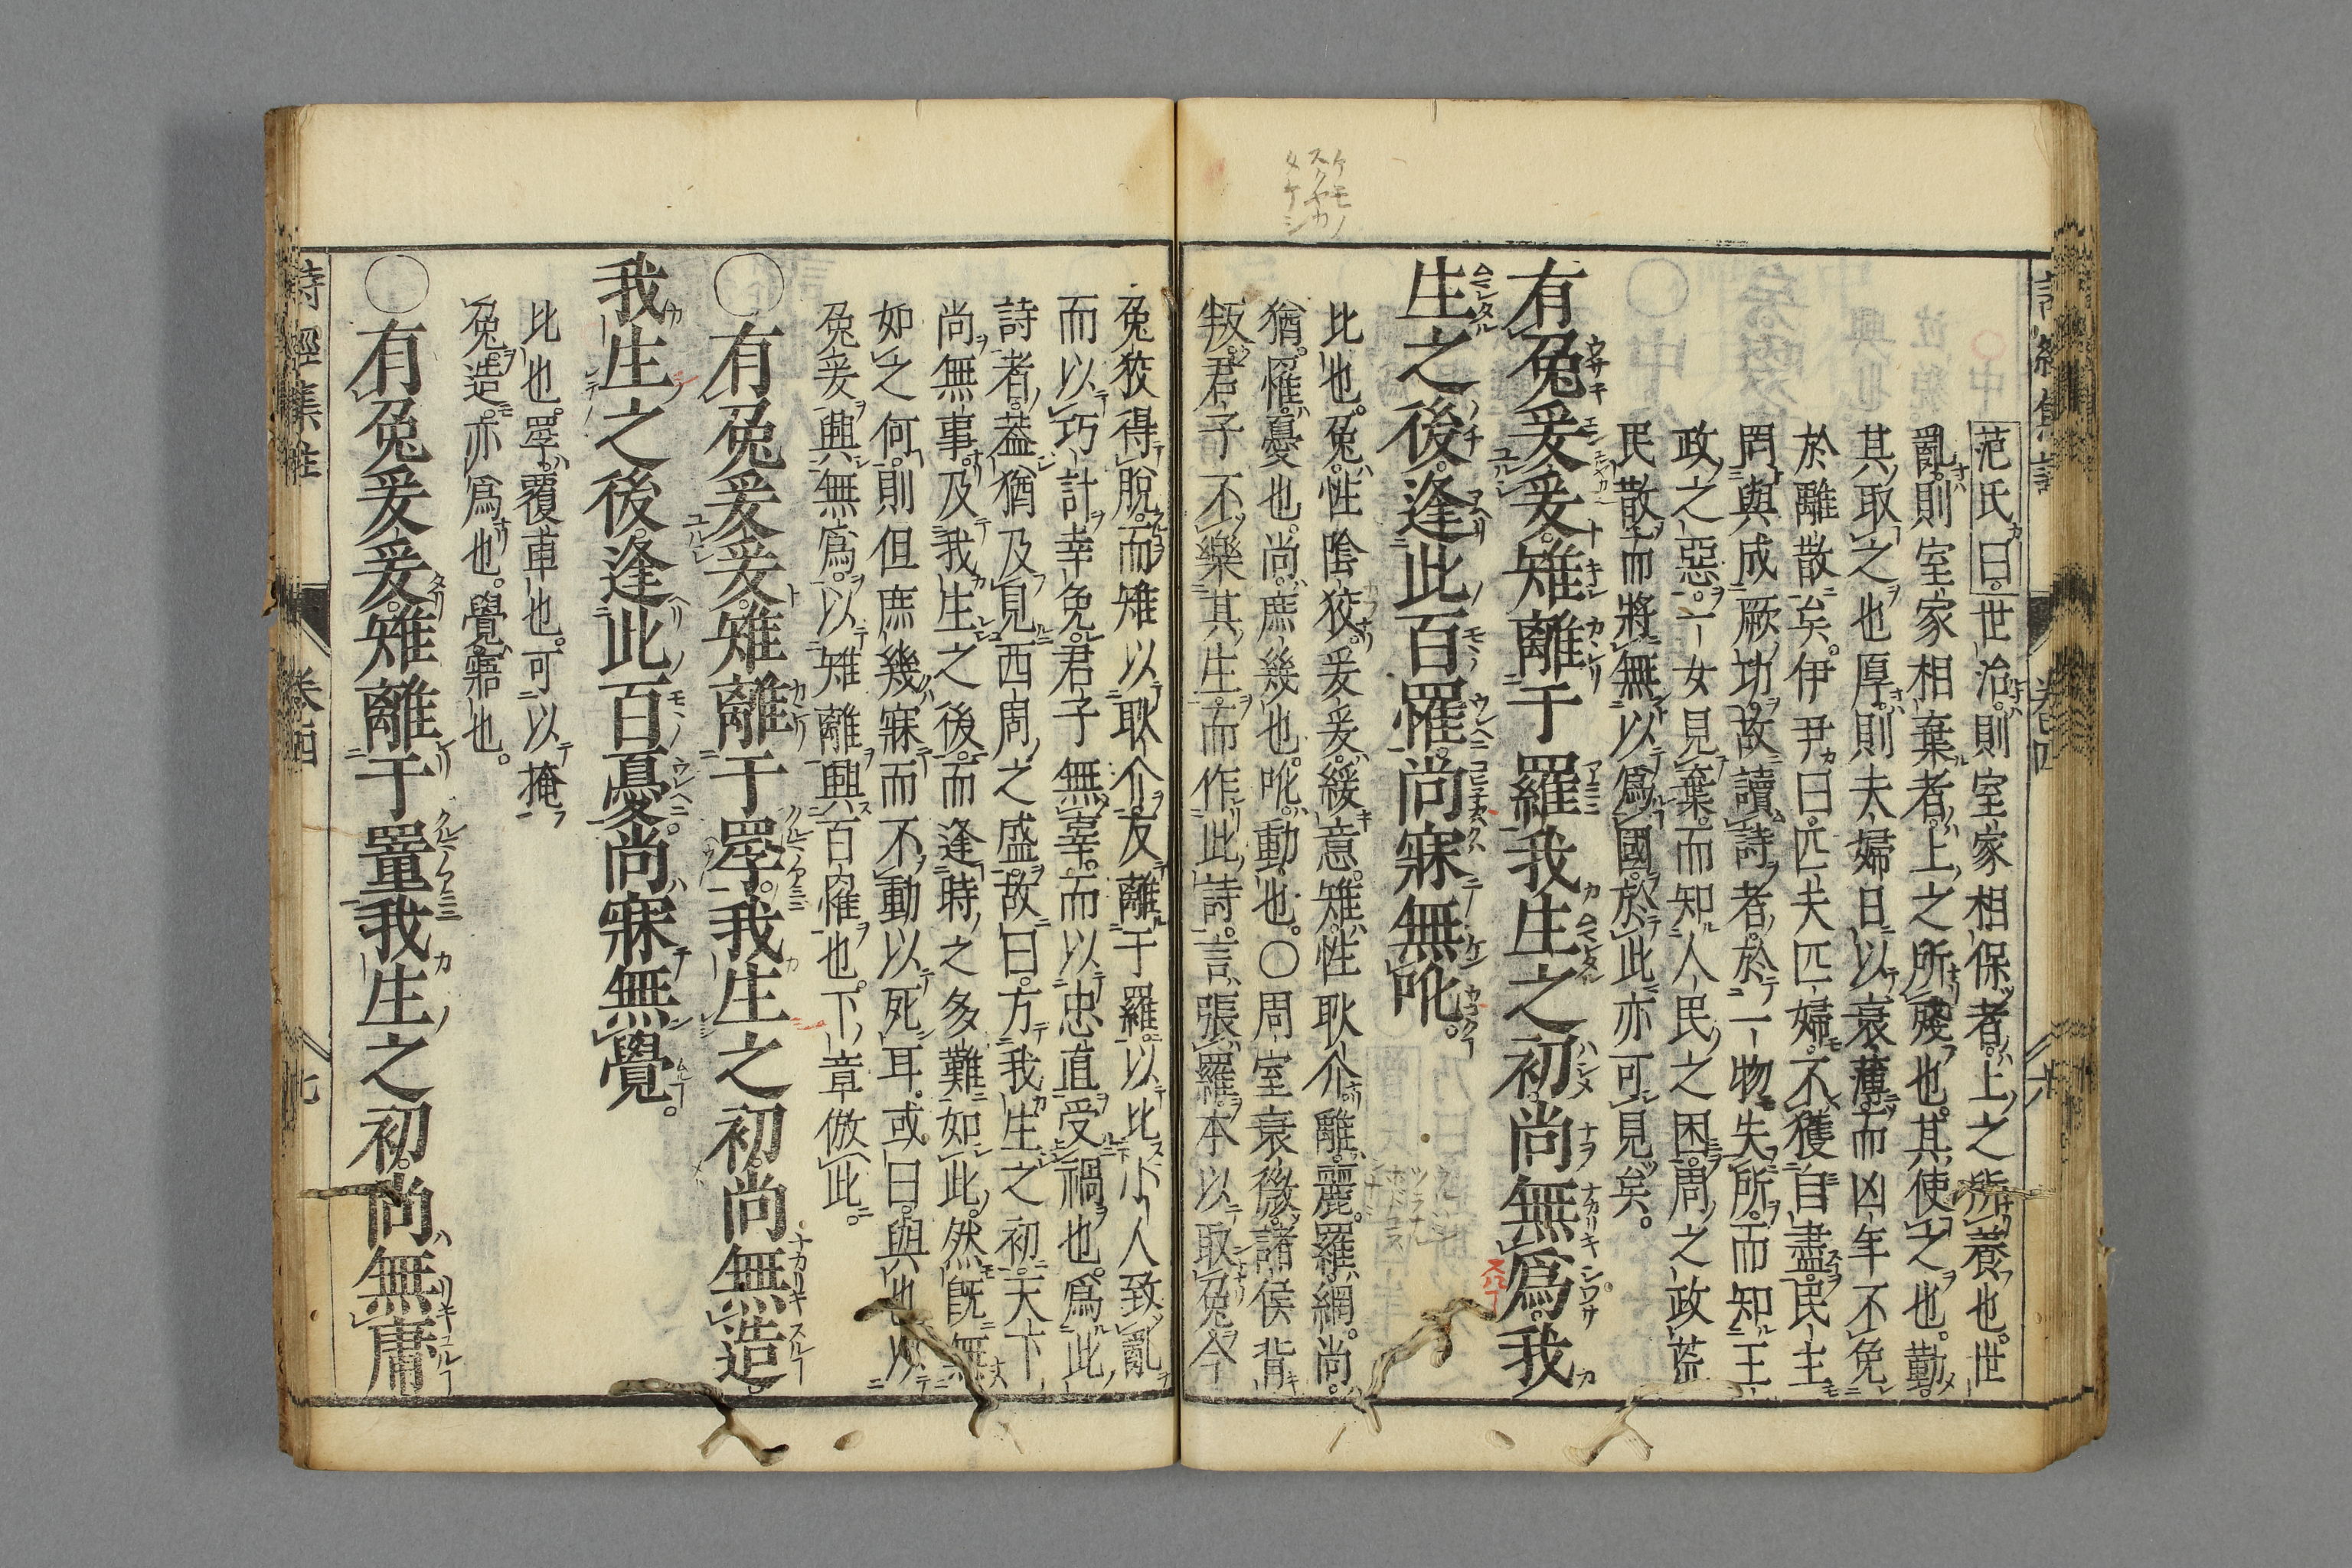 范氏曰。世治。則室家相保者。上之所養也。世
亂。則室家相棄者。上之所殘也。其使之也。勤。
其取之也厚。則夫婦日以衰薄。而凶年不免
於離散矣。伊尹曰。匹夫匹婦。不獲自盡。民主
罔與成厥功。故讀詩者。於一物失所。而知王
政之惡。一女見棄。而知人民之困。周之政荒
民散。而將無以爲國。於此亦可見矣。
有兔爰爰。雉離于羅。我生之初。尚無爲。我
生之後。逢此百罹。尚寐無吪。
比也。兔。性陰狡。爰爰。緩意。雉。性耿介。離。麗。羅。網。尚。
猶。罹。憂也。尚。庶幾也。吪。動也。○周室衰微。諸侯背
叛。君子不樂其生。而作此詩。言。張羅。本以取兔。今
兔狡得脫。而雉以耿介。反離于羅。以比小人致亂
而以巧計幸免。君子無辜。而以忠直受禍也。爲此
詩者。蓋猶及見西周之盛。故曰。方我生之初。天下
尚無事。及我生之後。而逢時之多難如此。然既無
如之何。則但庶幾寐而不動以死耳。或曰。興也。以
兔爰興無爲。以雉離興百罹也。下章倣此。
○有兔爰爰。雉離于罦。我生之初。尚無造。
我生之後。逢此百憂。尚寐無覺。
比也。罦。覆車也。可以掩
兔。造。亦爲也。覺。寤也。
○有兔爰爰。雉離于罿。我生之初。尚無庸
詩經集註
卷四
七
卷四
六
ケモノ
スクヤカ
タケシ